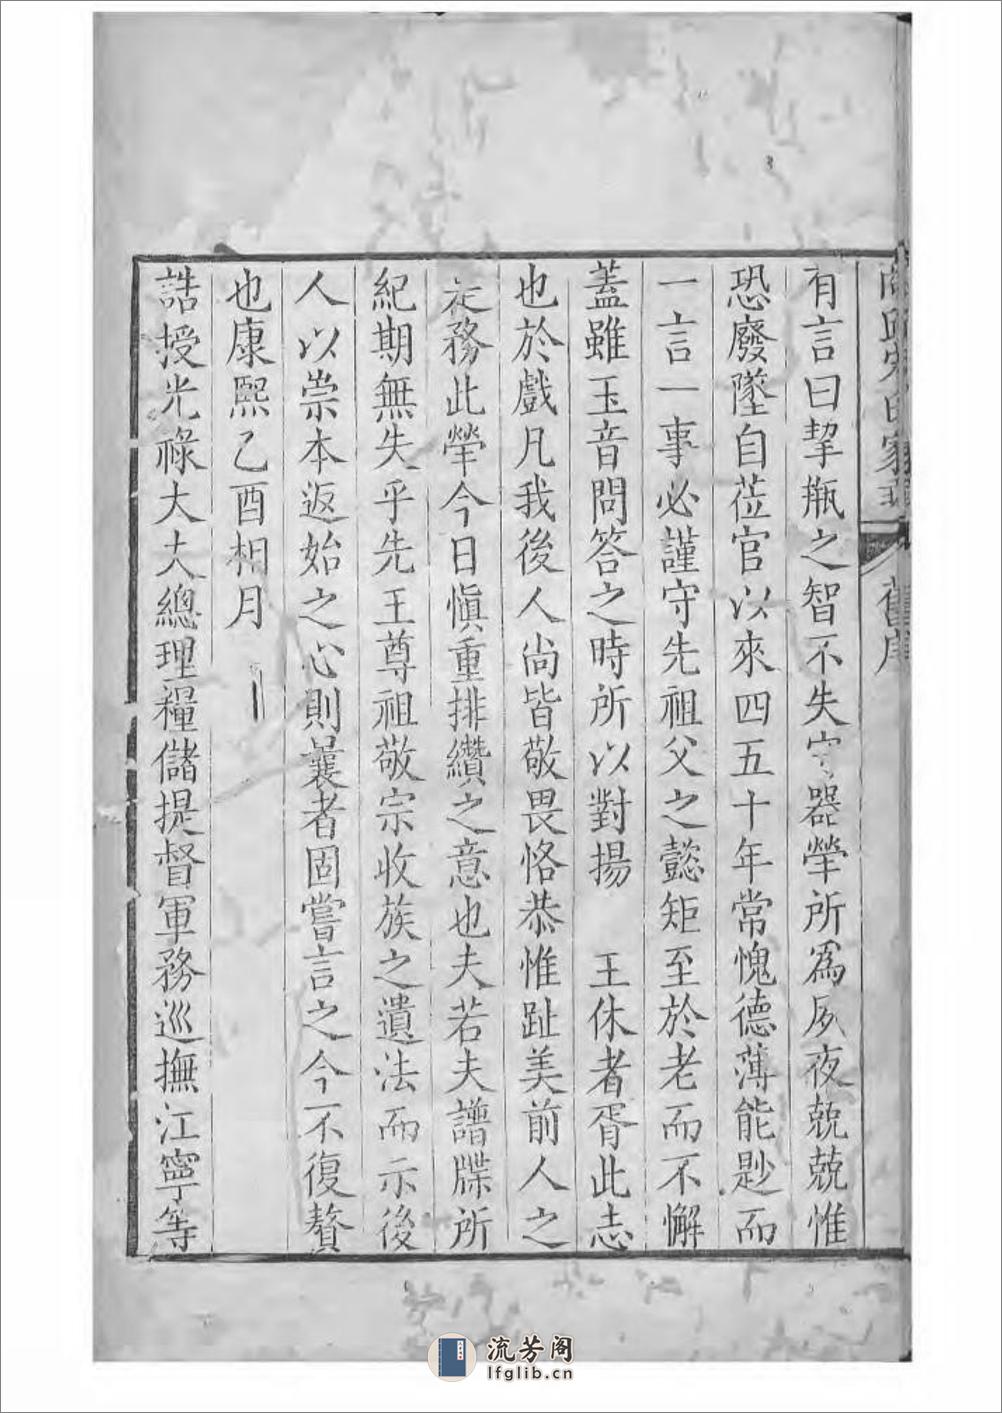 商邱宋氏家乘 舊序
有言曰挈瓶之智不失守器犖所爲夙夜兢兢惟
恐廢墜自莅官以來四五十年常愧德薄能尠而
一言一事必謹守先祖父之懿矩至於老而不懈
蓋雖玉音問答之時所以對揚 王休者胥此志
也於戲凡我後人尚皆敬畏恪恭惟趾美前人之
是務此犖今日慎重排纘之意也夫若夫譜牒所
紀期無失乎先王尊祖敬宗收族之遺法而示後
人以崇本返始之心則曩者固嘗言之今不復贅
也康熙乙酉相月
誥授光祿大夫總理糧儲提督軍務巡撫江寧等
流芳阁
lfglib.cn